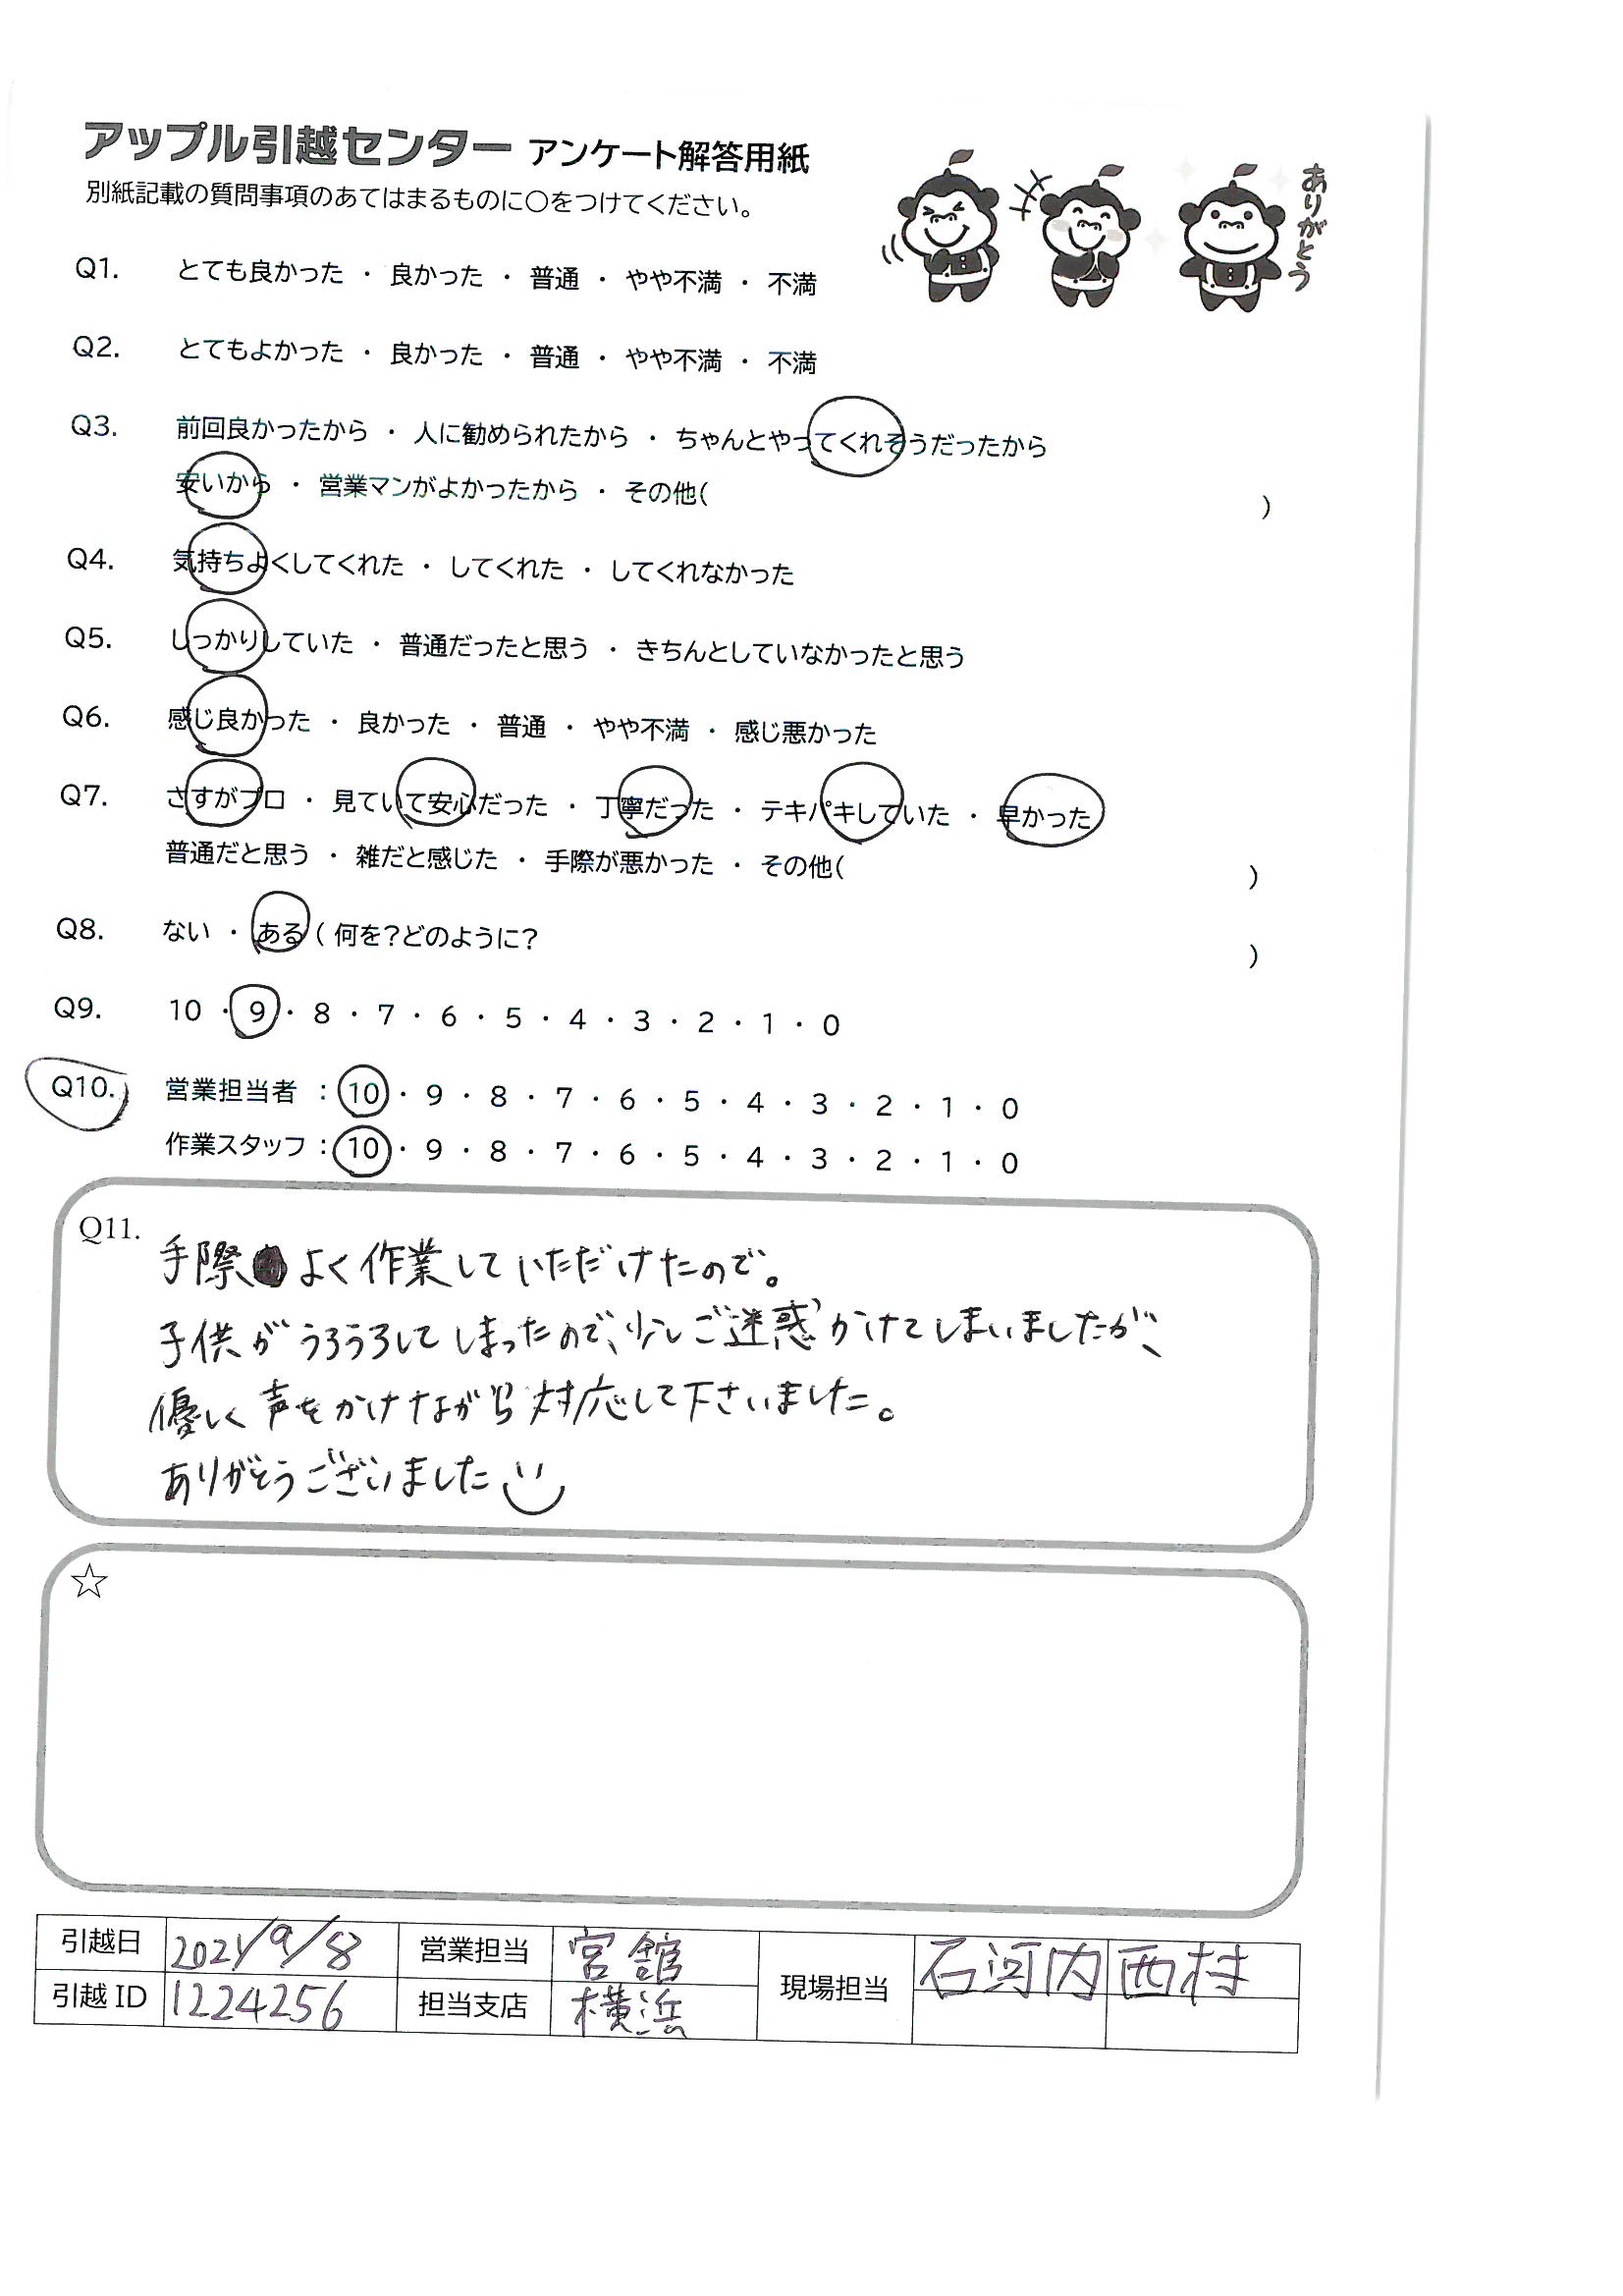 アップル引越センター アンケート解答用紙
別紙記載の質問事項のあてはまるものに○をつけてください。
ありがとう
Q1. とても良かった ・ 良かった ・ 普通 ・ やや不満 ・ 不満
Q2. とてもよかった ・ 良かった ・ 普通 ・ やや不満 ・ 不満
Q3. 前回良かったから ・ 人に勧められたから ・ ちゃんとやってくれそうだったから
安いから ・ 営業マンがよかったから ・ その他( )
Q4. 気持ちよくしてくれた ・ してくれた ・ してくれなかった
Q5. しっかりしていた ・ 普通だったと思う ・ きちんとしていなかったと思う
Q6. 感じ良かった ・ 良かった ・ 普通 ・ やや不満 ・ 感じ悪かった
Q7. さすがプロ ・ 見ていて安心だった ・ 丁寧だった ・ テキパキしていた ・ 早かった
普通だと思う ・ 雑だと感じた ・ 手際が悪かった ・ その他( )
Q8. ない ・ ある ( 何を?どのように? )
Q9. 10 ・ 9 ・ 8 ・ 7 ・ 6 ・ 5 ・ 4 ・ 3 ・ 2 ・ 1 ・ 0
Q10. 営業担当者 : 10 ・ 9 ・ 8 ・ 7 ・ 6 ・ 5 ・ 4 ・ 3 ・ 2 ・ 1 ・ 0
作業スタッフ : 10 ・ 9 ・ 8 ・ 7 ・ 6 ・ 5 ・ 4 ・ 3 ・ 2 ・ 1 ・ 0
Q11. 手際よく作業していただけたので。
子供がうろうろしてしまったので、少しご迷惑かけてしまいましたが、
優しく声をかけながら対応して下さいました。
ありがとうございました
☆
引越日 2021/9/8 営業担当 宮舘 現場担当 石河内 西村
引越ID 1224256 担当支店 横浜